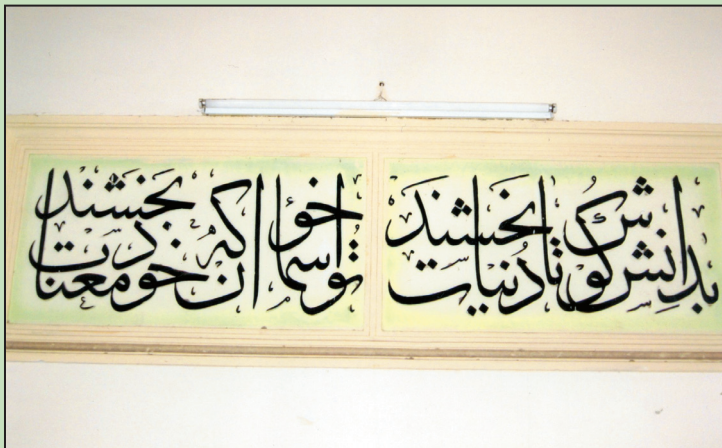 بدانش کوش تا دنیات بخشند
تو اسما خوان که خود معنات بخشند